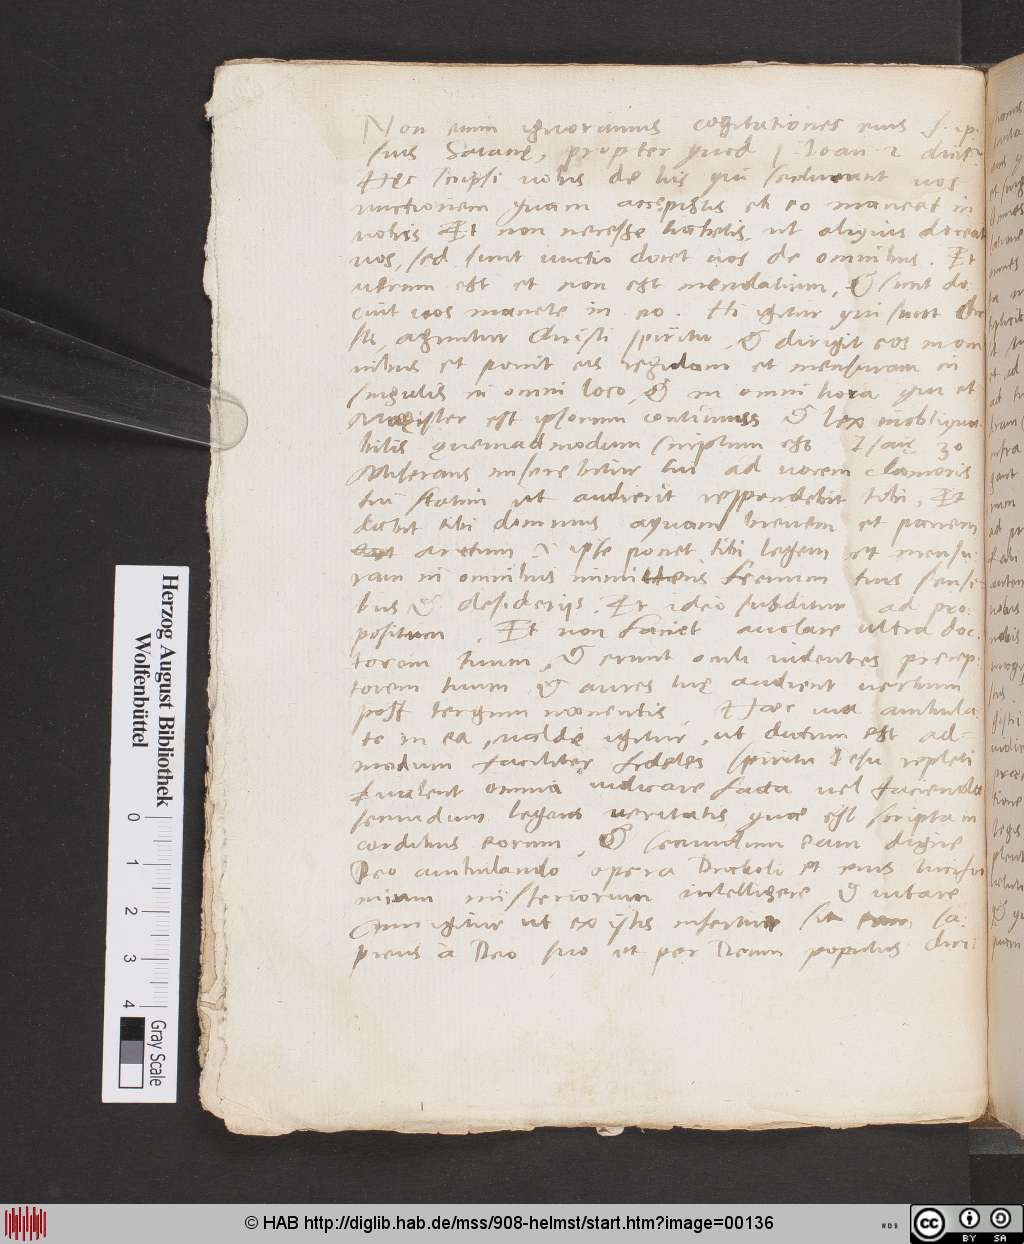 Non enim ignoramus cogitationes eius s. ip
sius Satanę, propter quod 1 Ioan 2 dicit
Hęc scripsi vobis de his qui seducunt vos
unctionem quam accepistis ab eo maneat in
vobis Et non necesse habetis, ut aliquis doceat
vos, sed sicut unctio docet vos de omnibus. Et
verum est et non est mendatium, & sicut do:
cuit vos manete in eo. Hi igitur qui sunt Chri
sti, aguntur Christi spiritu, & dirigit eos in om
nibus et ponit eis regulam et mensuram in
singulis in omni loco, & in omni hora qui et
Magister est ipsorum continuus & lex inobliqua
bilis quemadmodum scriptum est Isaię 30
Miserans miserebitur tui ad vocem clamoris
tui statim ut audierit respondebit tibi, Et
dabit tibi dominus aquam brevem et panem
arctum ipse ponet tibi legem et mensu
ram in omnibus immittens frenum tuis sensi
bus & desiderijs. Et ideo subditur ad pro:
positum. Et non faciet avolare ultra doc
torem tuum, & erunt oculi videntes precep:
torem tuum & aures tuę audient verbum
post tergum monentis, Haec via ambula
te in ea, valde igitur, ut dictum est ad=
modum faciliter fideles spiritu Iesu repleti
valent omnia iudicare facta vel facienda
secundum legem veritatis quae est scripta in
cordibus eorum, & secundum eam digne
Deo ambulando opera Diaboli et eius
misteriorum intelligere & vitare
Cum igitur ut ex istis infertur sit sa:
piens a Deo suo et per Deum populus chri:
Herzog August Bibliothek
Wolfenbüttel
0 1 2 3 4
Gray Scale
© HAB http://diglib.hab.de/mss/908-helmst/start.htm?image=00136
WDB
cc BY SA